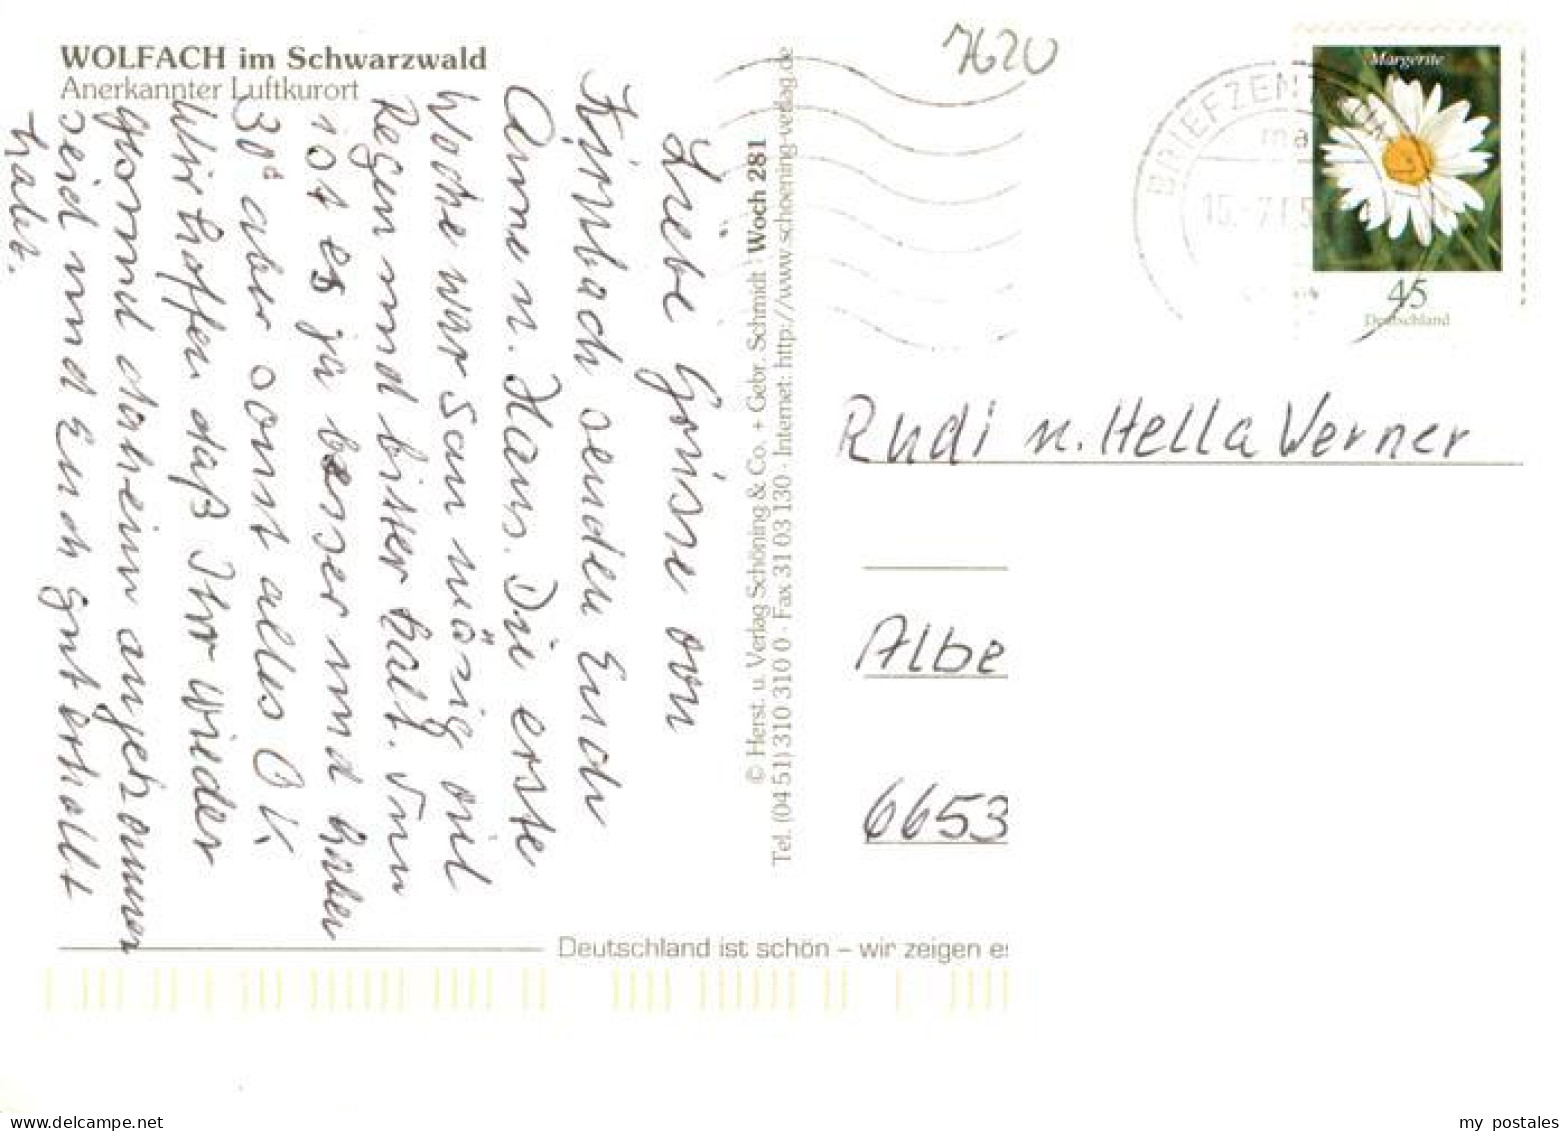 WOLFACH im Schwarzwald
Anerkannter Luftkurort
Liebe Grüsse von
Kirnbach senden Euch
Anne u. Hans. Die erste
Woche war Sau mäsig viel
Regen und bitter kalt. Nun
ist es ja besser und haben
30° aber sonst alles OK
Wir hoffen daß Ihr wieder
gesund daheim angekommen
seid und Euch gut erholt
habt.
© Herst. u. Verlag Schöning & Co. + Gebr. Schmidt · Woch 281
Tel. (04 51) 310 310 0 · Fax 31 03 130 · Internet: http://www.schoening-verlag.de
7620
BRIEFZENTRUM
Margerite
45
Deutschland
Rudi u. Hella Werner
Albe
6653
Deutschland ist schön – wir zeigen es
my postales